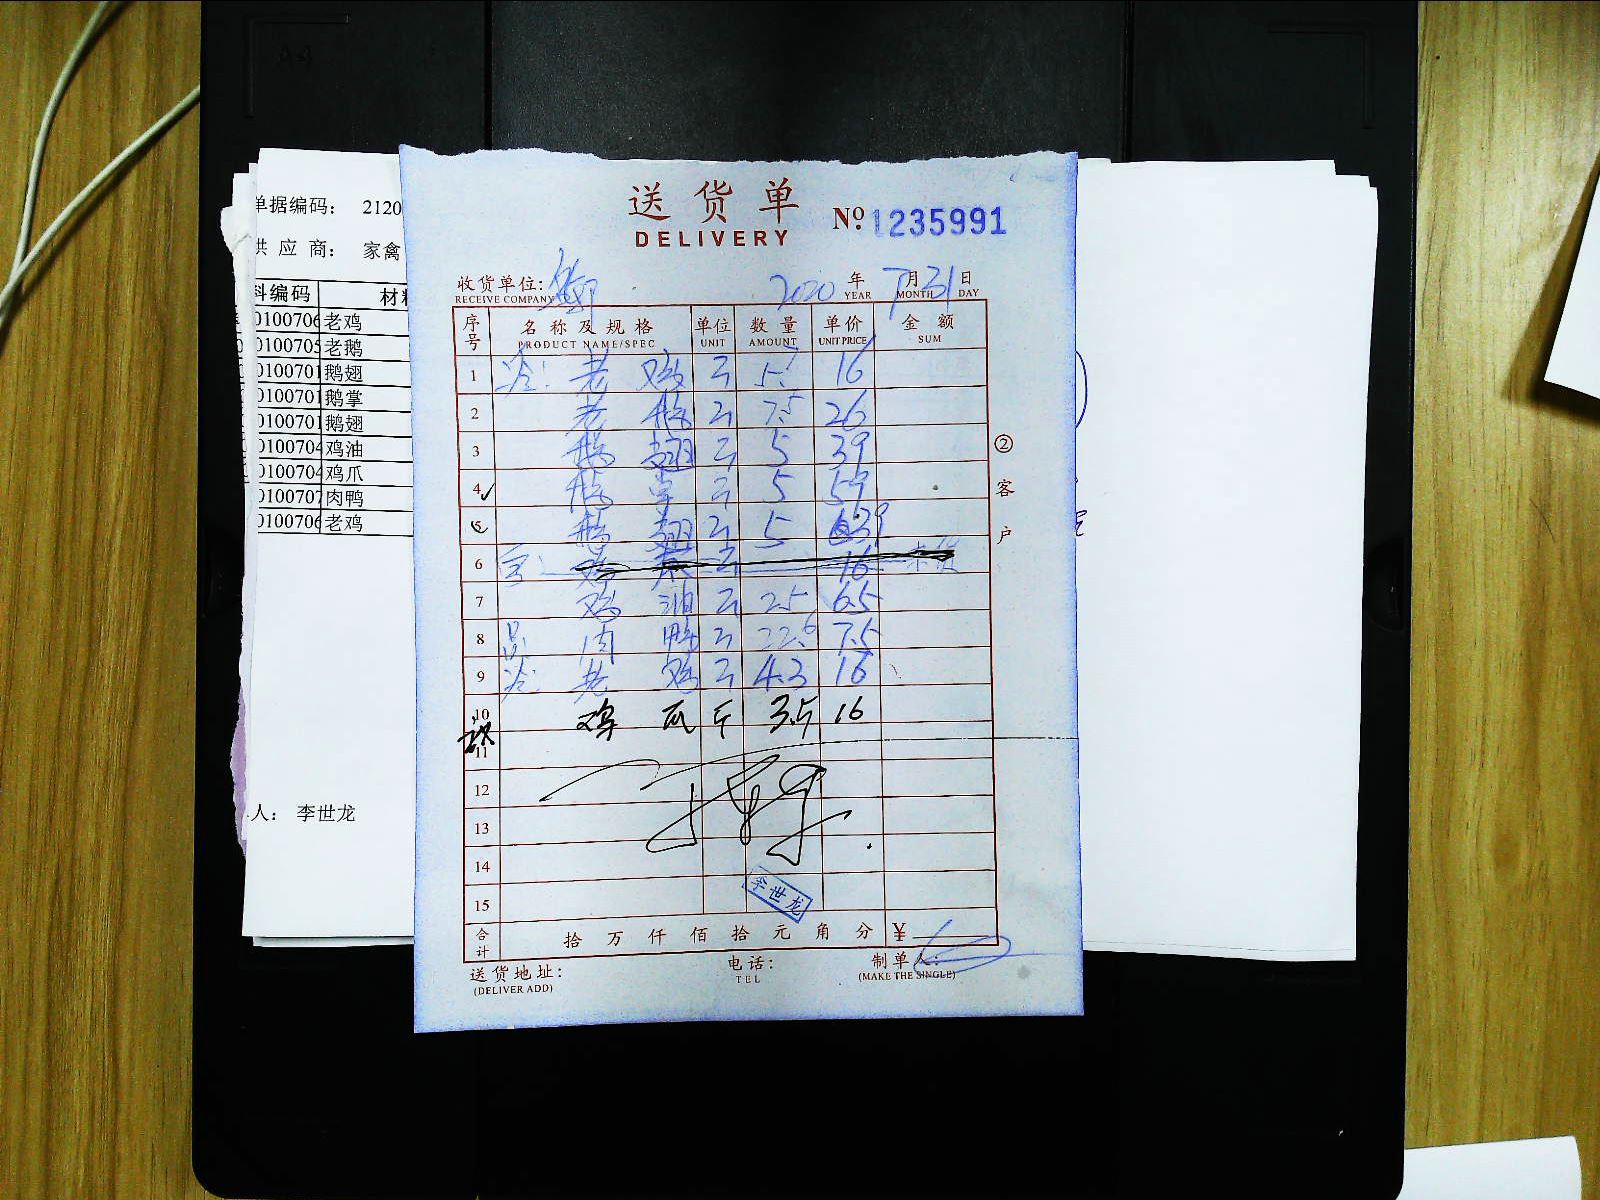 送货单
DELIVERY
№ 1235991
单据编码： 2120
供应商： 家禽
收货单位:
RECEIVE COMPANY
2020 年 7 月 31 日
YEAR MONTH DAY
料编码 材料
0100706 老鸡
0100705 老鹅
0100701 鹅翅
0100701 鹅掌
0100701 鹅翅
0100704 鸡油
0100704 鸡爪
0100707 肉鸭
0100706 老鸡
人： 李世龙
序号 名称及规格 单位 数量 单价 金额
PRODUCT NAME/SPEC UNIT AMOUNT UNIT PRICE SUM
1 冷: 老鸡 斤 16
2 老鹅 斤 7.5 26
3 鹅翅 斤 5 39
4 鹅掌 斤 5 59
5 鹅翅 斤 5 39
6 斤 16
7 鸡油 斤 25 6.5
8 肉鸭 斤 22.6 7.5
9 冷: 老鸡 斤 4.3 16
10 鸡爪 斤 3.5 16
11
12
13
14
15
李世龙
合计 拾万仟佰拾元角分 ¥
送货地址: 电话: 制单人:
(DELIVER ADD) TEL (MAKE THE SINGLE)
②客户